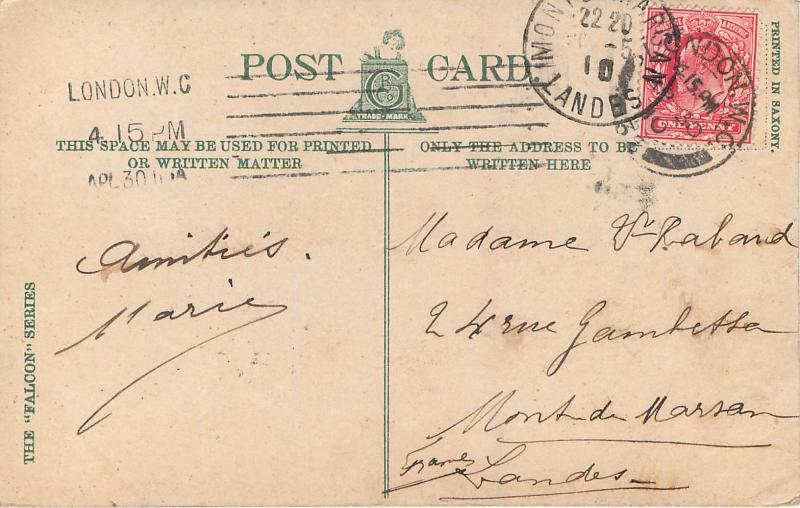 POST CARD
GB
Co
TRADE-MARK
LONDON.W.C
4.15PM
APL 30 10
THIS SPACE MAY BE USED FOR PRINTED
OR WRITTEN MATTER
ONLY THE ADDRESS TO BE
WRITTEN HERE
MONT-DE-MARSAN
22 20
-5
10
LANDES
LONDON. W.C
4.15 PM
POSTAGE & REVENUE
ONE PENNY
PRINTED IN SAXONY.
THE "FALCON" SERIES
Amitiés.
Marie
Madame Ve Rabard
24 rue Gambetta
Mont-de-Marsan
Landes
France